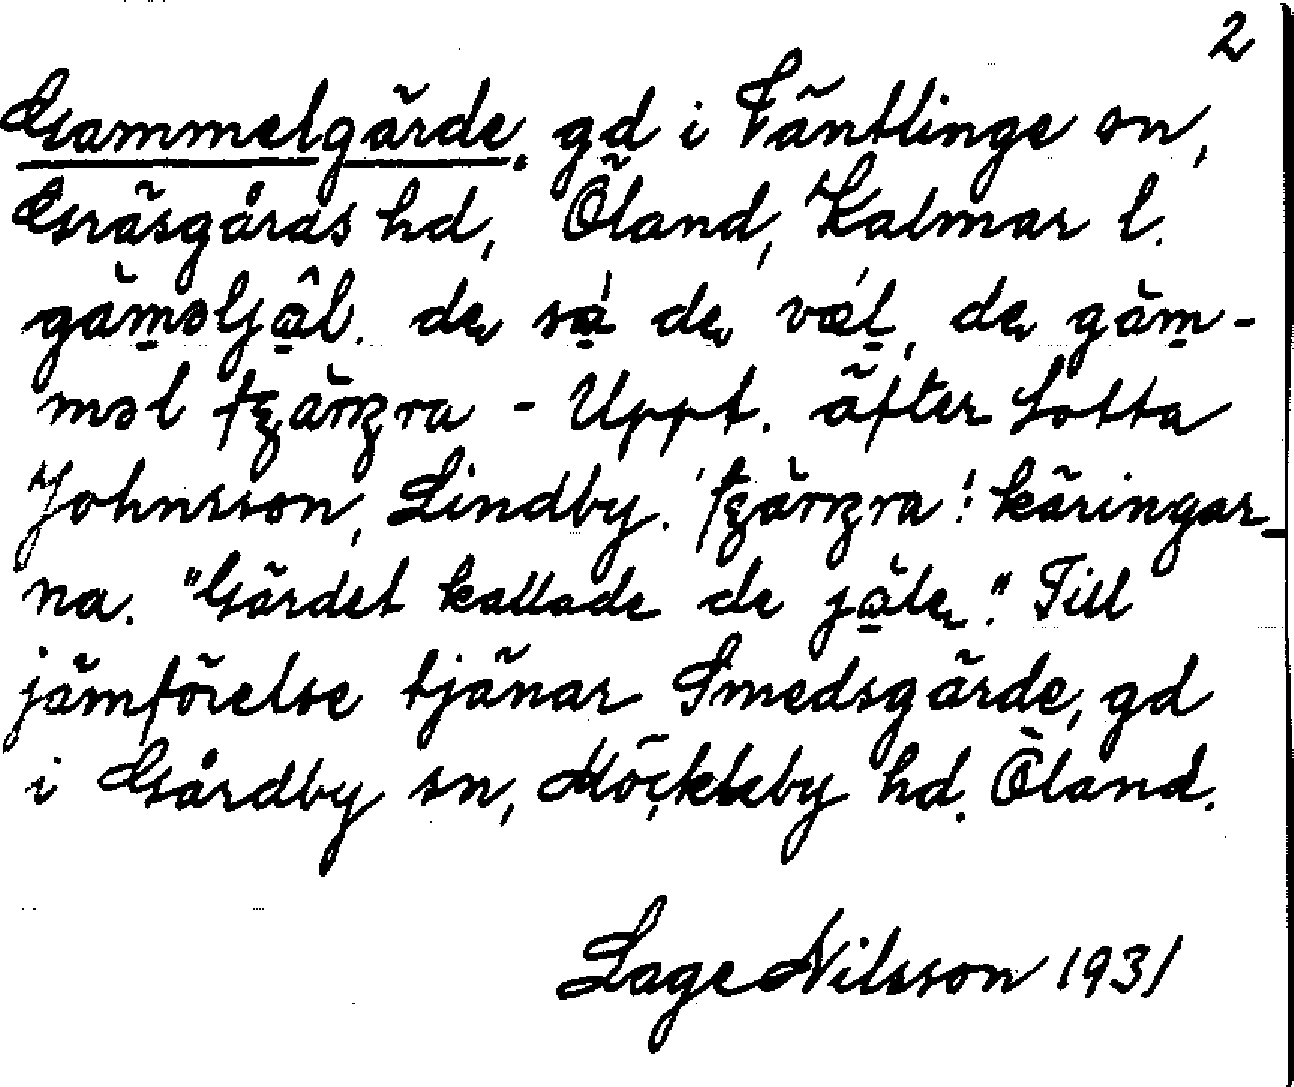 2
Gammelgärde. gd i Väntlinge sn,
Gräsgårds hd, Öland, Kalmar l.
gàməljâl. de sá de, væl, de gàm-
məl - Uppt. äfter Lotta
Johnsson, Lindby. : käringar-
na. "Gärdet kallade de jäle." Till
jämförelse tjänar Smedsgärde, gd
i Gårdby sn, Möckleby hd. Öland.
Lage Nilsson 1931